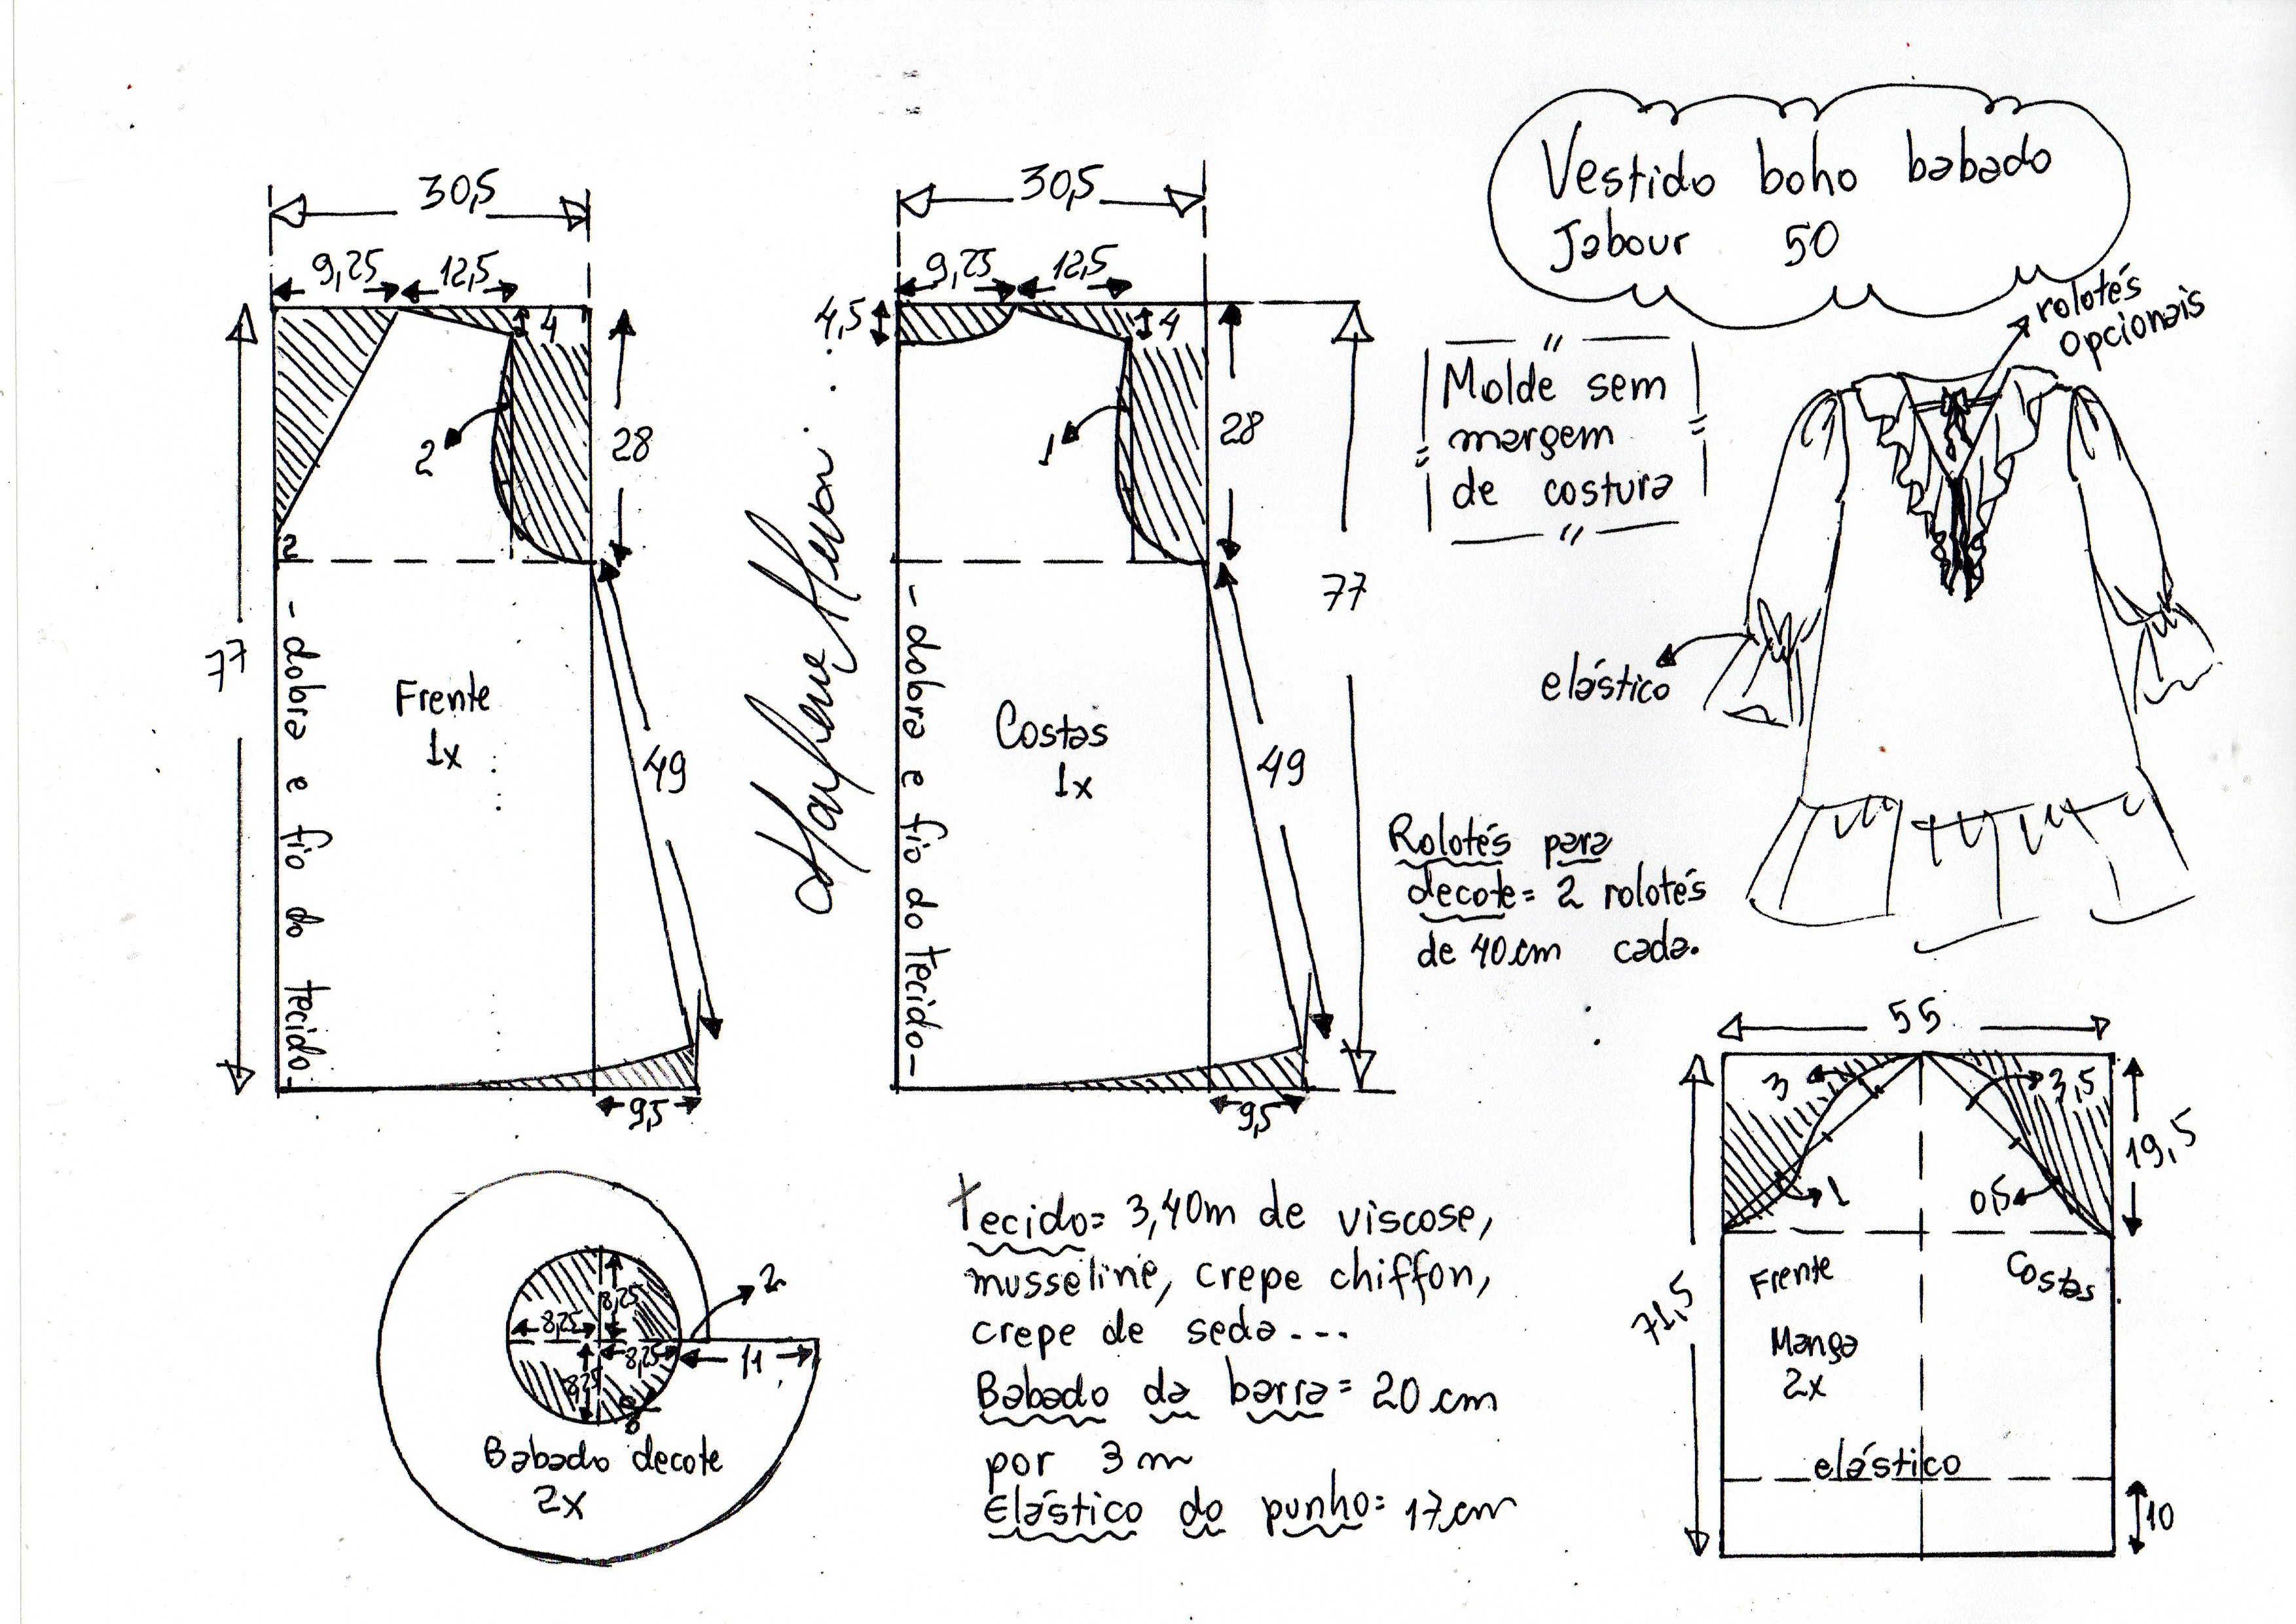 Vestido boho babado
Jabour 50
30,5
9,25
12,5
4
28
2
2
77
49
9,5
Frente
1x
- dobra e fio do tecido -
Marlene Mukai
30,5
9,25
12,5
4,5
4
28
1
77
49
9,5
Costas
1x
- dobra e fio do tecido -
Molde sem
margem
de costura
rolotés
opcionais
elástico
Rolotés para
decote = 2 rolotés
de 40 cm cada.
8,25
8,25
8,25
8,25
2
11
Babado decote
2x
Tecido = 3,40m de viscose,
musseline, crepe chiffon,
crepe de seda...
Babado da barra = 20 cm
por 3 m
Elástico do punho = 17 cm
55
3
3,5
19,5
1
0,5
71,5
Frente
Costas
Manga
2x
elástico
10